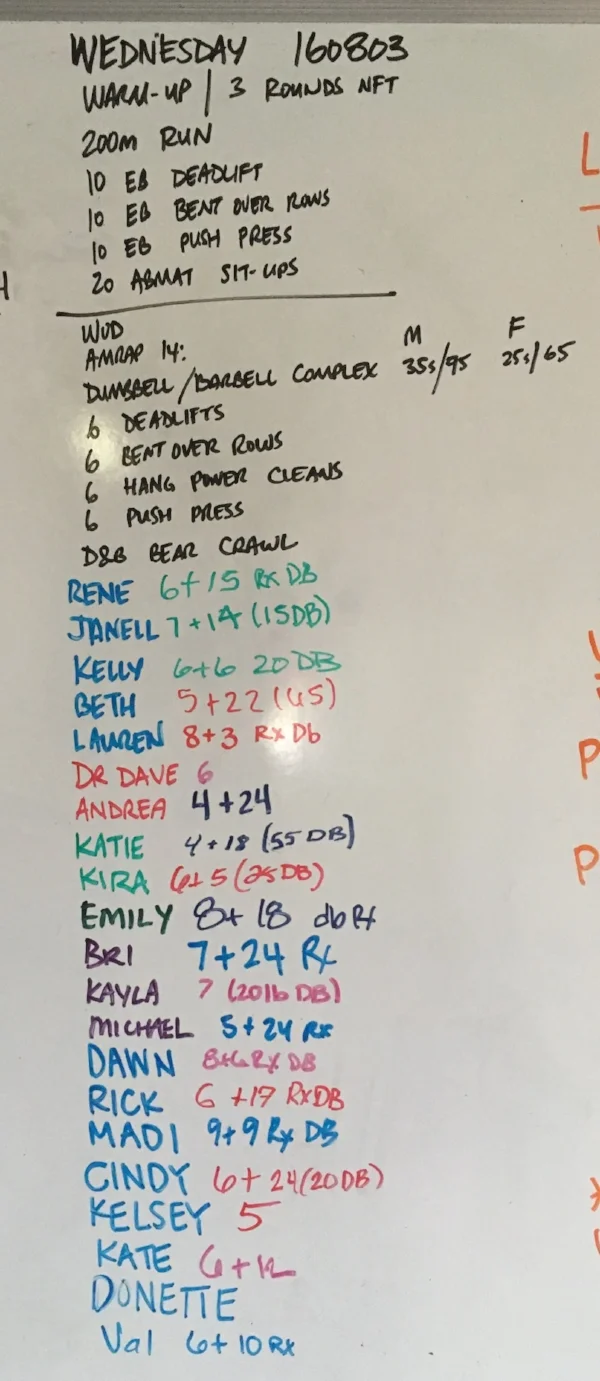 WEDNESDAY 160803
WARM-UP | 3 ROUNDS NFT
200m RUN
10 EB DEADLIFT
10 EB BENT OVER ROWS
10 EB PUSH PRESS
20 ABMAT SIT-UPS
WOD
AMRAP 14: M F
DUMBBELL/BARBELL COMPLEX 35s/95 25s/65
6 DEADLIFTS
6 BENT OVER ROWS
6 HANG POWER CLEANS
6 PUSH PRESS
D&B BEAR CRAWL
RENE 6+15 RX DB
JANELL 7+14 (15DB)
KELLY 6+6 20 DB
BETH 5+22 (45)
LAUREN 8+3 Rx Db
DR DAVE 6
ANDREA 4+24
KATIE 4+18 (55 DB)
KIRA 6+5 (25DB)
EMILY 8+18 db Rx
BRI 7+24 Rx
KAYLA 7 (20lb DB)
MICHAEL 5+24 Rx
DAWN 8+6 Rx DB
RICK 6 +17 RxDB
MADI 9+9 Rx DB
CINDY 6+24 (20DB)
KELSEY 5
KATE 6+12
DONETTE
Val 6+10 Rx